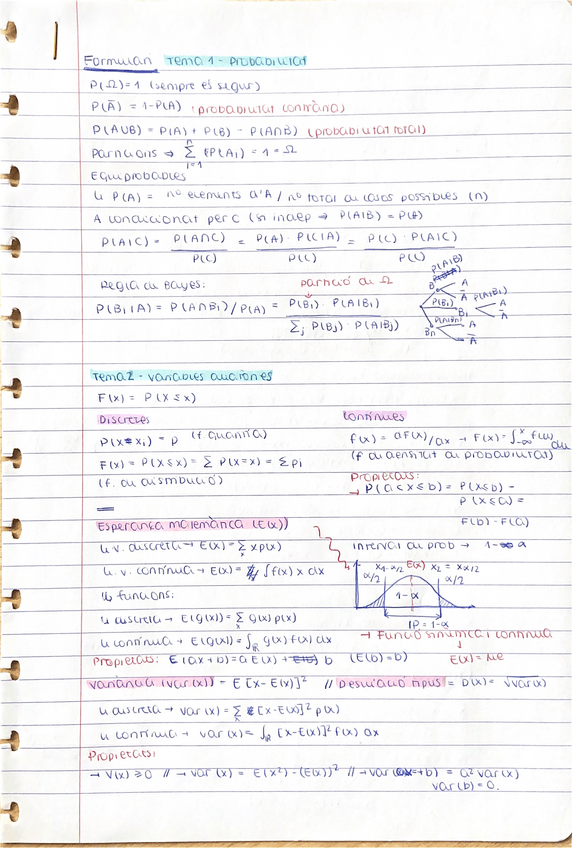 Formulari Tema 1 - Probabilitat
P(Ω)=1 (sempre és segur)
P(Ā) = 1-P(A) (probabilitat contrària)
P(A∪B) = P(A) + P(B) - P(A∩B) (probabilitat total)
Particions ⇒ Σ_{i=1}^{n} P(A_i) = 1 = Ω
Equiprobables
↳ P(A) = nº elements d'A / nº total de casos possibles (n)
A condicionat per C (si indep ⇒ P(A|B) = P(A)
P(A|C) = P(A∩C) / P(C) = P(A) · P(C|A) / P(C) = P(C) · P(A|C) / P(C)
Regla de Bayes: partició de Ω
P(B_i|A) = P(A∩B_i)/P(A) = P(B_i) · P(A|B_i) / Σ_j P(B_j) · P(A|B_j)
P(A|B)
B A Ā
P(B_i) B_i P(A|B_i) A Ā
Bn P(A|Bn) A Ā
Tema 2 - Variables aleatòries
F(x) = P(X ≤ x)
Discretes
P(X=x_i) = p (f. quantia)
F(x) = P(X≤x) = Σ P(X=x) = Σ p_i
(f. de distribució)
Contínues
f(x) = dF(x)/dx → F(x) = ∫_{-∞}^{x} f(u) du
(f. de densitat de probabilitat)
Propietats:
→ P(a<X≤b) = P(X≤b) -
P(X≤a) =
F(b) - F(a)
Esperança matemàtica (E(x))
↳ v. discreta → E(x) = Σ_x x p(x)
↳ v. contínua → E(x) = ∫ f(x) x dx
↳ funcions:
↳ discreta → E(g(x)) = Σ_x g(x) p(x)
↳ contínua → E(g(x)) = ∫_ℝ g(x) f(x) dx
Propietats: E(ax+b) = a E(x) + b (E(b)=b)
Interval de prob → 1-α
x_{1-α/2} E(x) x_2 = x_{α/2}
α/2 1-α α/2
IP = 1-α
→ Funció simètrica i contínua
↓
E(x) = Me
Variància (var(x)) = E[x-E(x)]² // Desviació típus = D(x) = √var(x)
↳ discreta → var(x) = Σ_x [x-E(x)]² p(x)
↳ contínua → var(x) = ∫_ℝ [x-E(x)]² f(x) dx
Propietats:
→ V(x) ≥ 0 // → var(x) = E(x²) - (E(x))² // → var(ax+b) = a² var(x)
var(b) = 0.